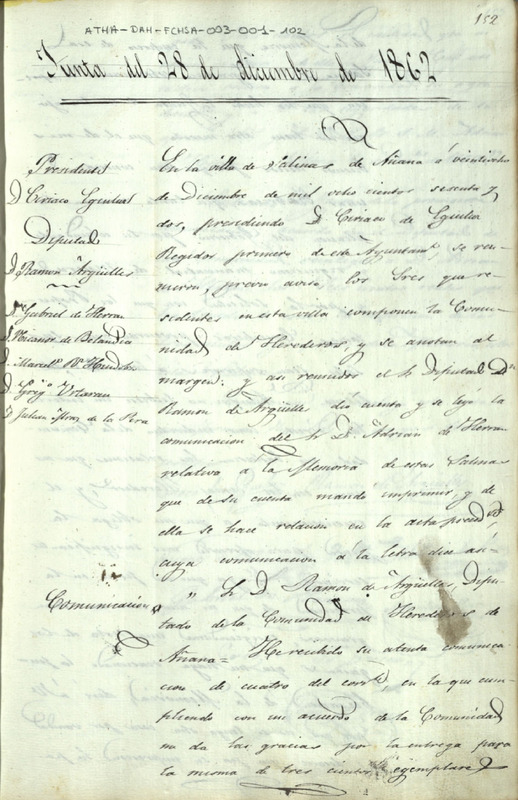 152
ATHA-DAH-FCHSA-003-001-102
Junta del 28 de diciembre de 1862
Presidente
D Ciriaco Eguiluz
Diputado
D. Ramon Argüelles
D. Gabriel de Herran
D. Nicanor de Belandia
D. Marcel.º
D. Greg.º Urbaran
D. Julian Diaz de la Pera
En la villa de Salinas de Añana á veintiocho
de Diciembre de mil ocho cientos sesenta y
dos, presidiendo D. Ciriaco de Eguiluz
Regidor primero de este Ayuntam.to se reu-
nieron, previo aviso los Sres que re-
sidentes en esta villa componen la Comu-
nidad de Herederos, y se anotan al
margen: y asi reunidos el Sr Diputado Dn
Ramon de Argüelles dio cuenta y se leyo la
comunicacion del Sr D. Adrian de Herran
relativa á la Memoria de estas Salinas
que de su cuenta mandó imprimir, y de
ella se hace relacion en la acta preced.te,
cuya comunicacion á la letra dice asi=
Comunicacion
" Sr D. Ramon de Argüelles, Dipu-
tado de la Comunidad de Herederos de
Añana= He recibido su atenta comunica-
cion de cuatro del corr.te, en la que cum-
pliendo con un acuerdo de la Comunidad
me da las gracias por la entrega para
la misma de tres cientos ejemplares